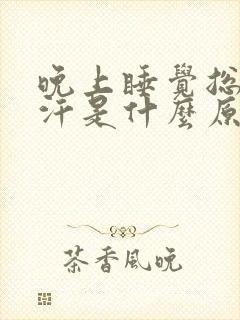 晚上睡覺总
汗是什麼原
茶香風晚